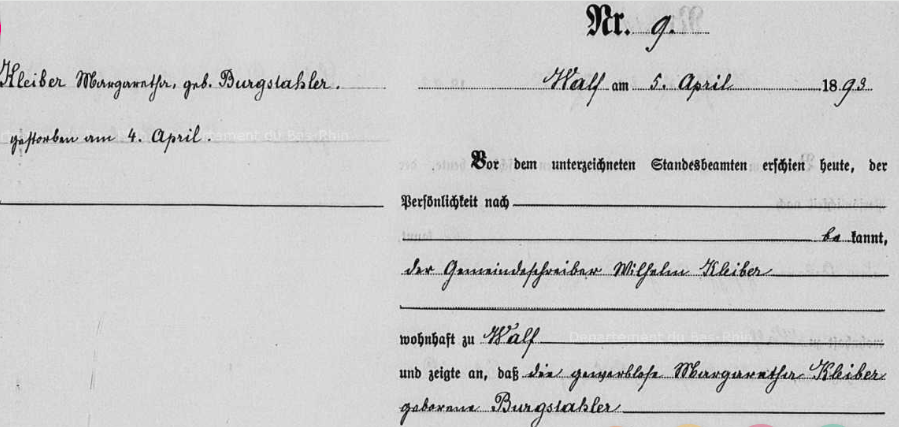 Nr. 9.
Kleiber Margaretha, geb. Burgstahler.
gestorben am 4. April.
Walf am 5. April 1893
Vor dem unterzeichneten Standesbeamten erschien heute, der
Persönlichkeit nach
bekannt,
der Gemeindeschreiber Wilhelm Kleiber
wohnhaft zu Walf
und zeigte an, daß die gewerblose Margaretha Kleiber
geborene Burgstahler